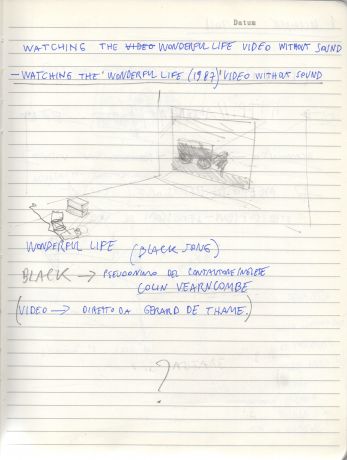 Datum
WATCHING THE VIDEO WONDERFUL LIFE VIDEO WITHOUT SOUND
- WATCHING THE "WONDERFUL LIFE (1987)" VIDEO WITHOUT SOUND
WONDERFUL LIFE (BLACK SONG)
BLACK → PSEUDONIMO DEL CANTAUTORE INGLESE
COLIN VEARNCOMBE
(VIDEO → DIRETTO DA GERARD DE THAME.)
?